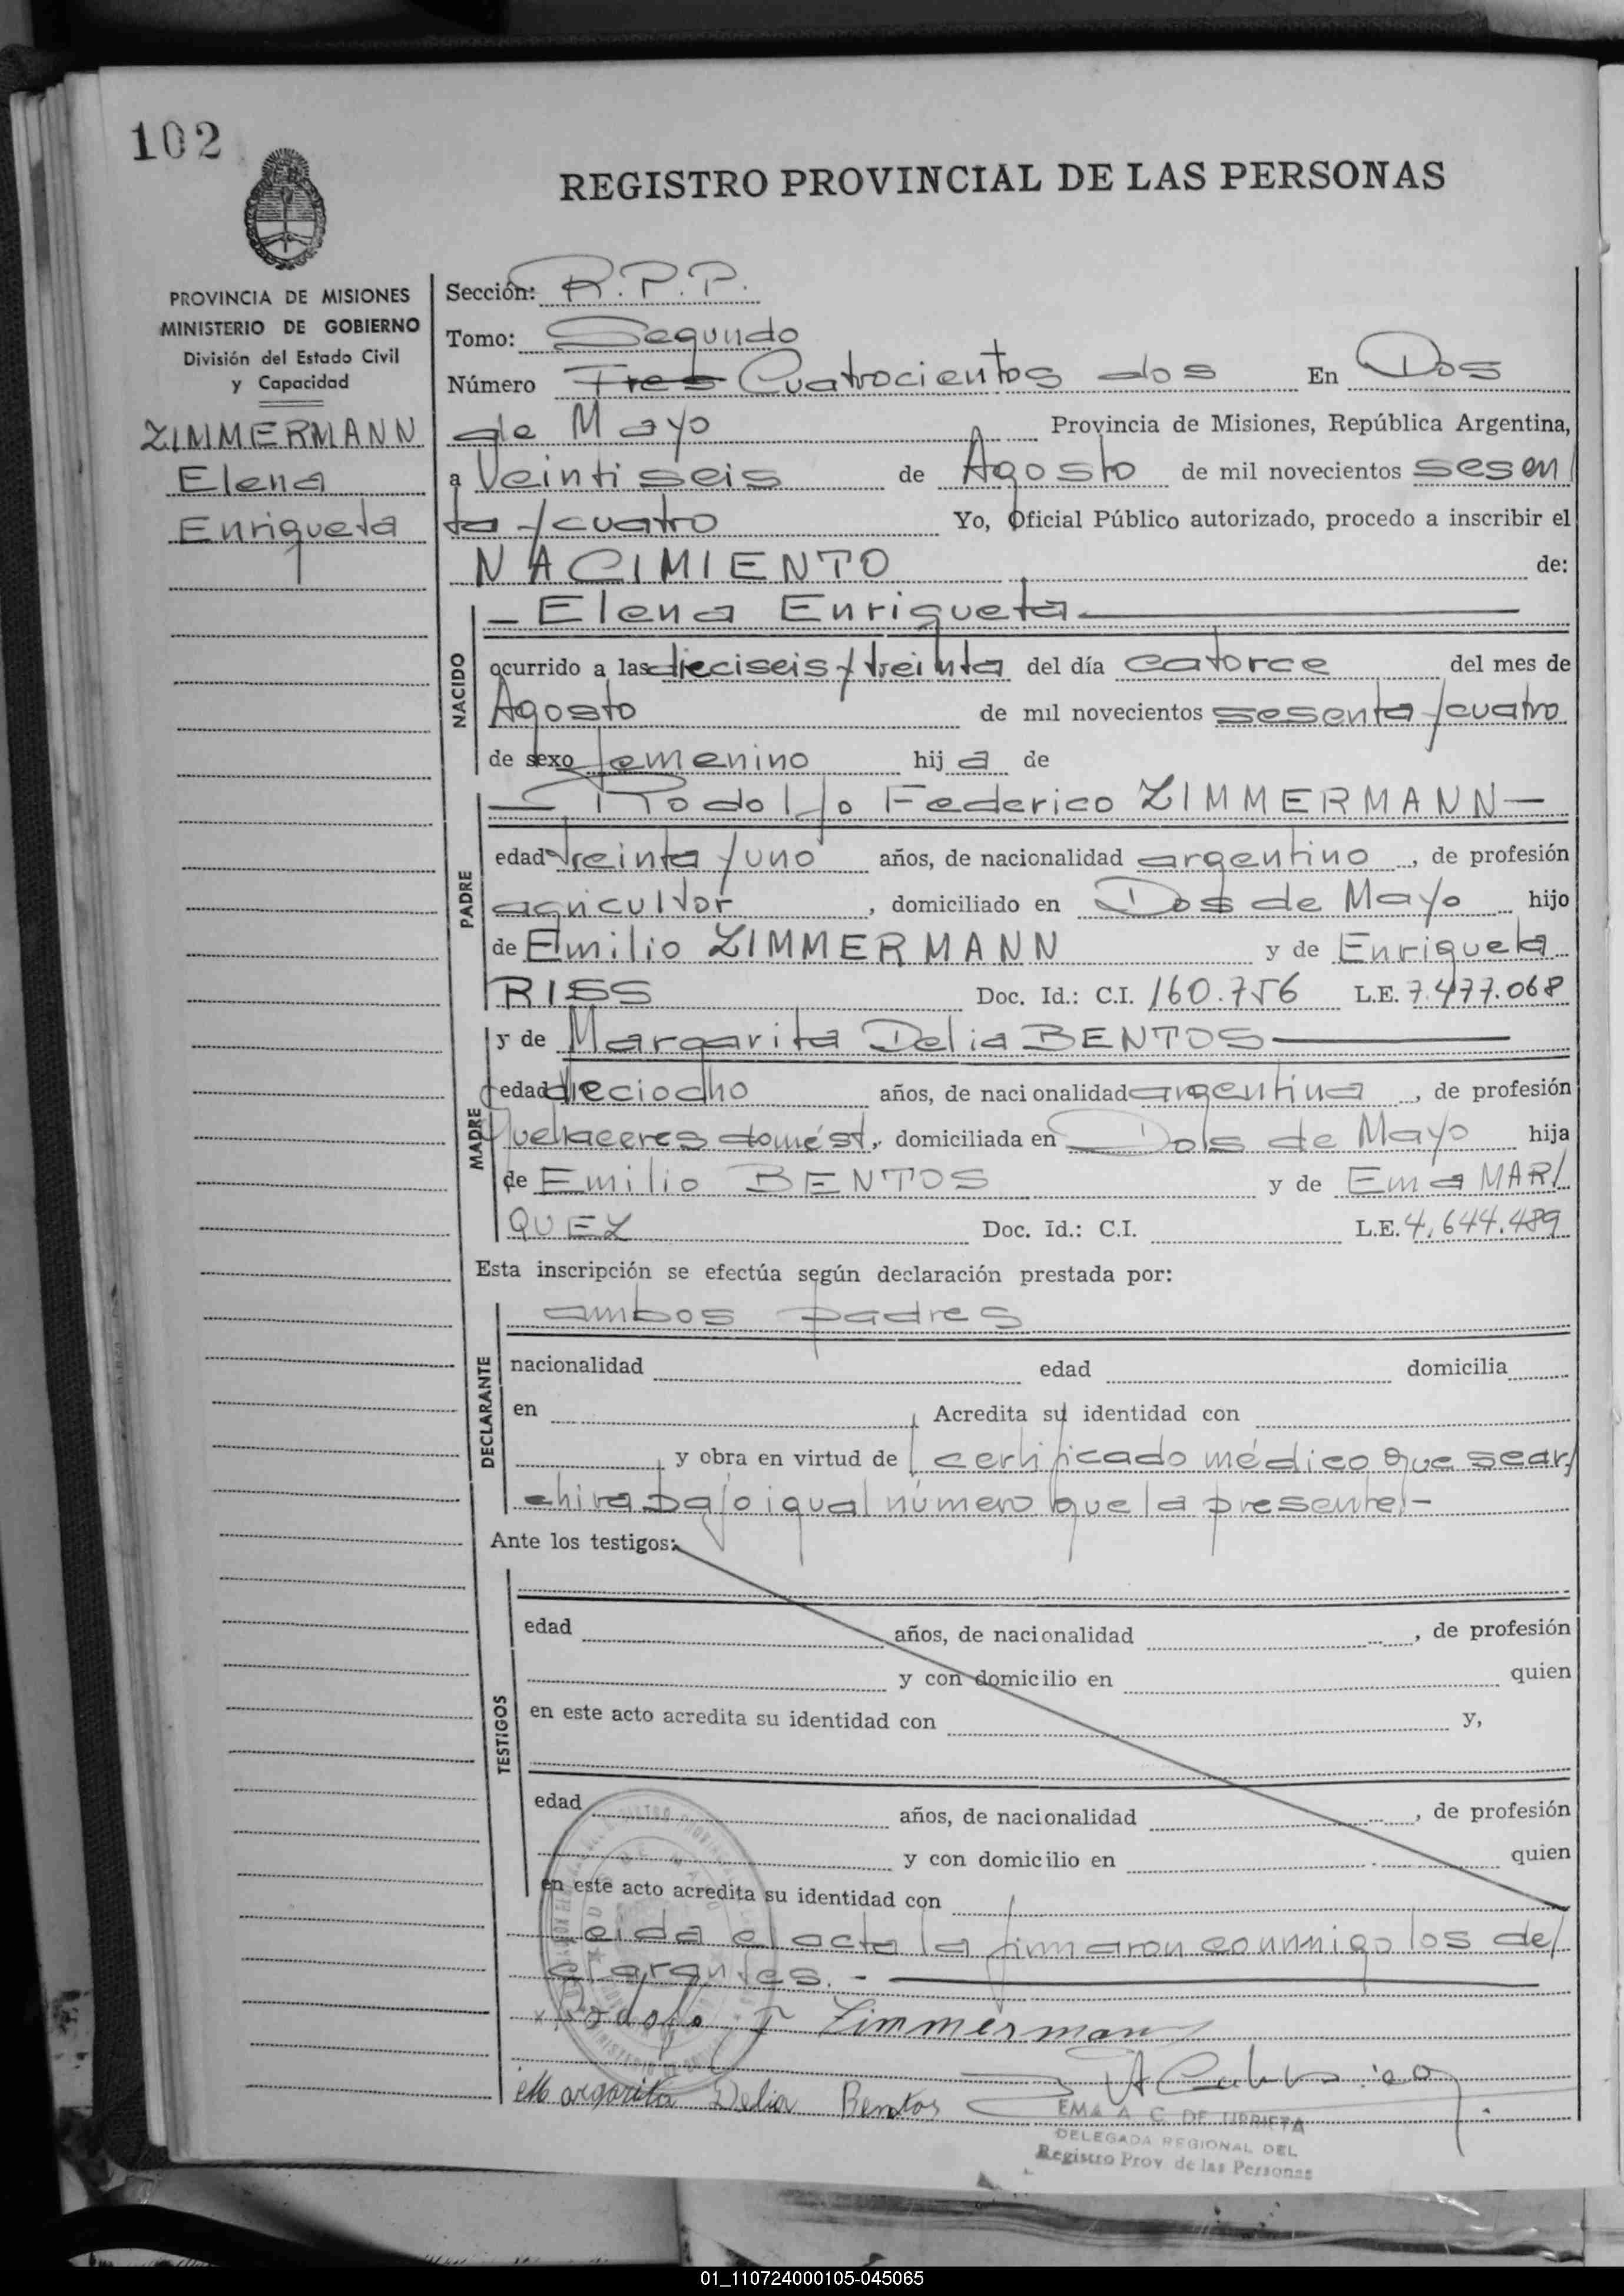 102
REGISTRO PROVINCIAL DE LAS PERSONAS
PROVINCIA DE MISIONES
MINISTERIO DE GOBIERNO
División del Estado Civil
y Capacidad
ZIMMERMANN
Elena
Enriqueta
Sección: R.P.P.
Tomo: Segundo
Número Tres Cuatrocientos dos En Dos
de Mayo Provincia de Misiones, República Argentina,
a Veintiseis de Agosto de mil novecientos sesen
ta y cuatro Yo, Oficial Público autorizado, procedo a inscribir el
NACIMIENTO de:
NACIDO
— Elena Enriqueta —
ocurrido a las dieciseis y treinta del día catorce del mes de
Agosto de mil novecientos sesenta y cuatro
de sexo femenino hija de
PADRE
— Rodolfo Federico ZIMMERMANN —
edad treinta y uno años, de nacionalidad argentino, de profesión
agricultor, domiciliado en Dos de Mayo hijo
de Emilio ZIMMERMANN y de Enriqueta
RISS Doc. Id.: C.I. 160.756 L.E. 7.477.068
MADRE
y de Margarita Delia BENTOS —
edad dieciocho años, de nacionalidad argentina, de profesión
Quehaceres domést, domiciliada en Dos de Mayo hija
de Emilio BENTOS y de Ema MARI
QUEZ Doc. Id.: C.I. L.E. 4.644.489
Esta inscripción se efectúa según declaración prestada por:
DECLARANTE
ambos padres
nacionalidad edad domicilia
en Acredita su identidad con
y obra en virtud de certificado médico que se ar
chiva bajo igual número que la presente.-
Ante los testigos:
TESTIGOS
edad años, de nacionalidad , de profesión
y con domicilio en quien
en este acto acredita su identidad con y,
edad años, de nacionalidad , de profesión
y con domicilio en quien
en este acto acredita su identidad con
Leida el acta la firmaron conmigo los de
clarantes. - —
x Rodolfo F Zimmermann
Margarita Delia Bentos
EMA A C. DE URRIETA
DELEGADA REGIONAL DEL
Registro Prov de las Personas
01_110724000105-045065